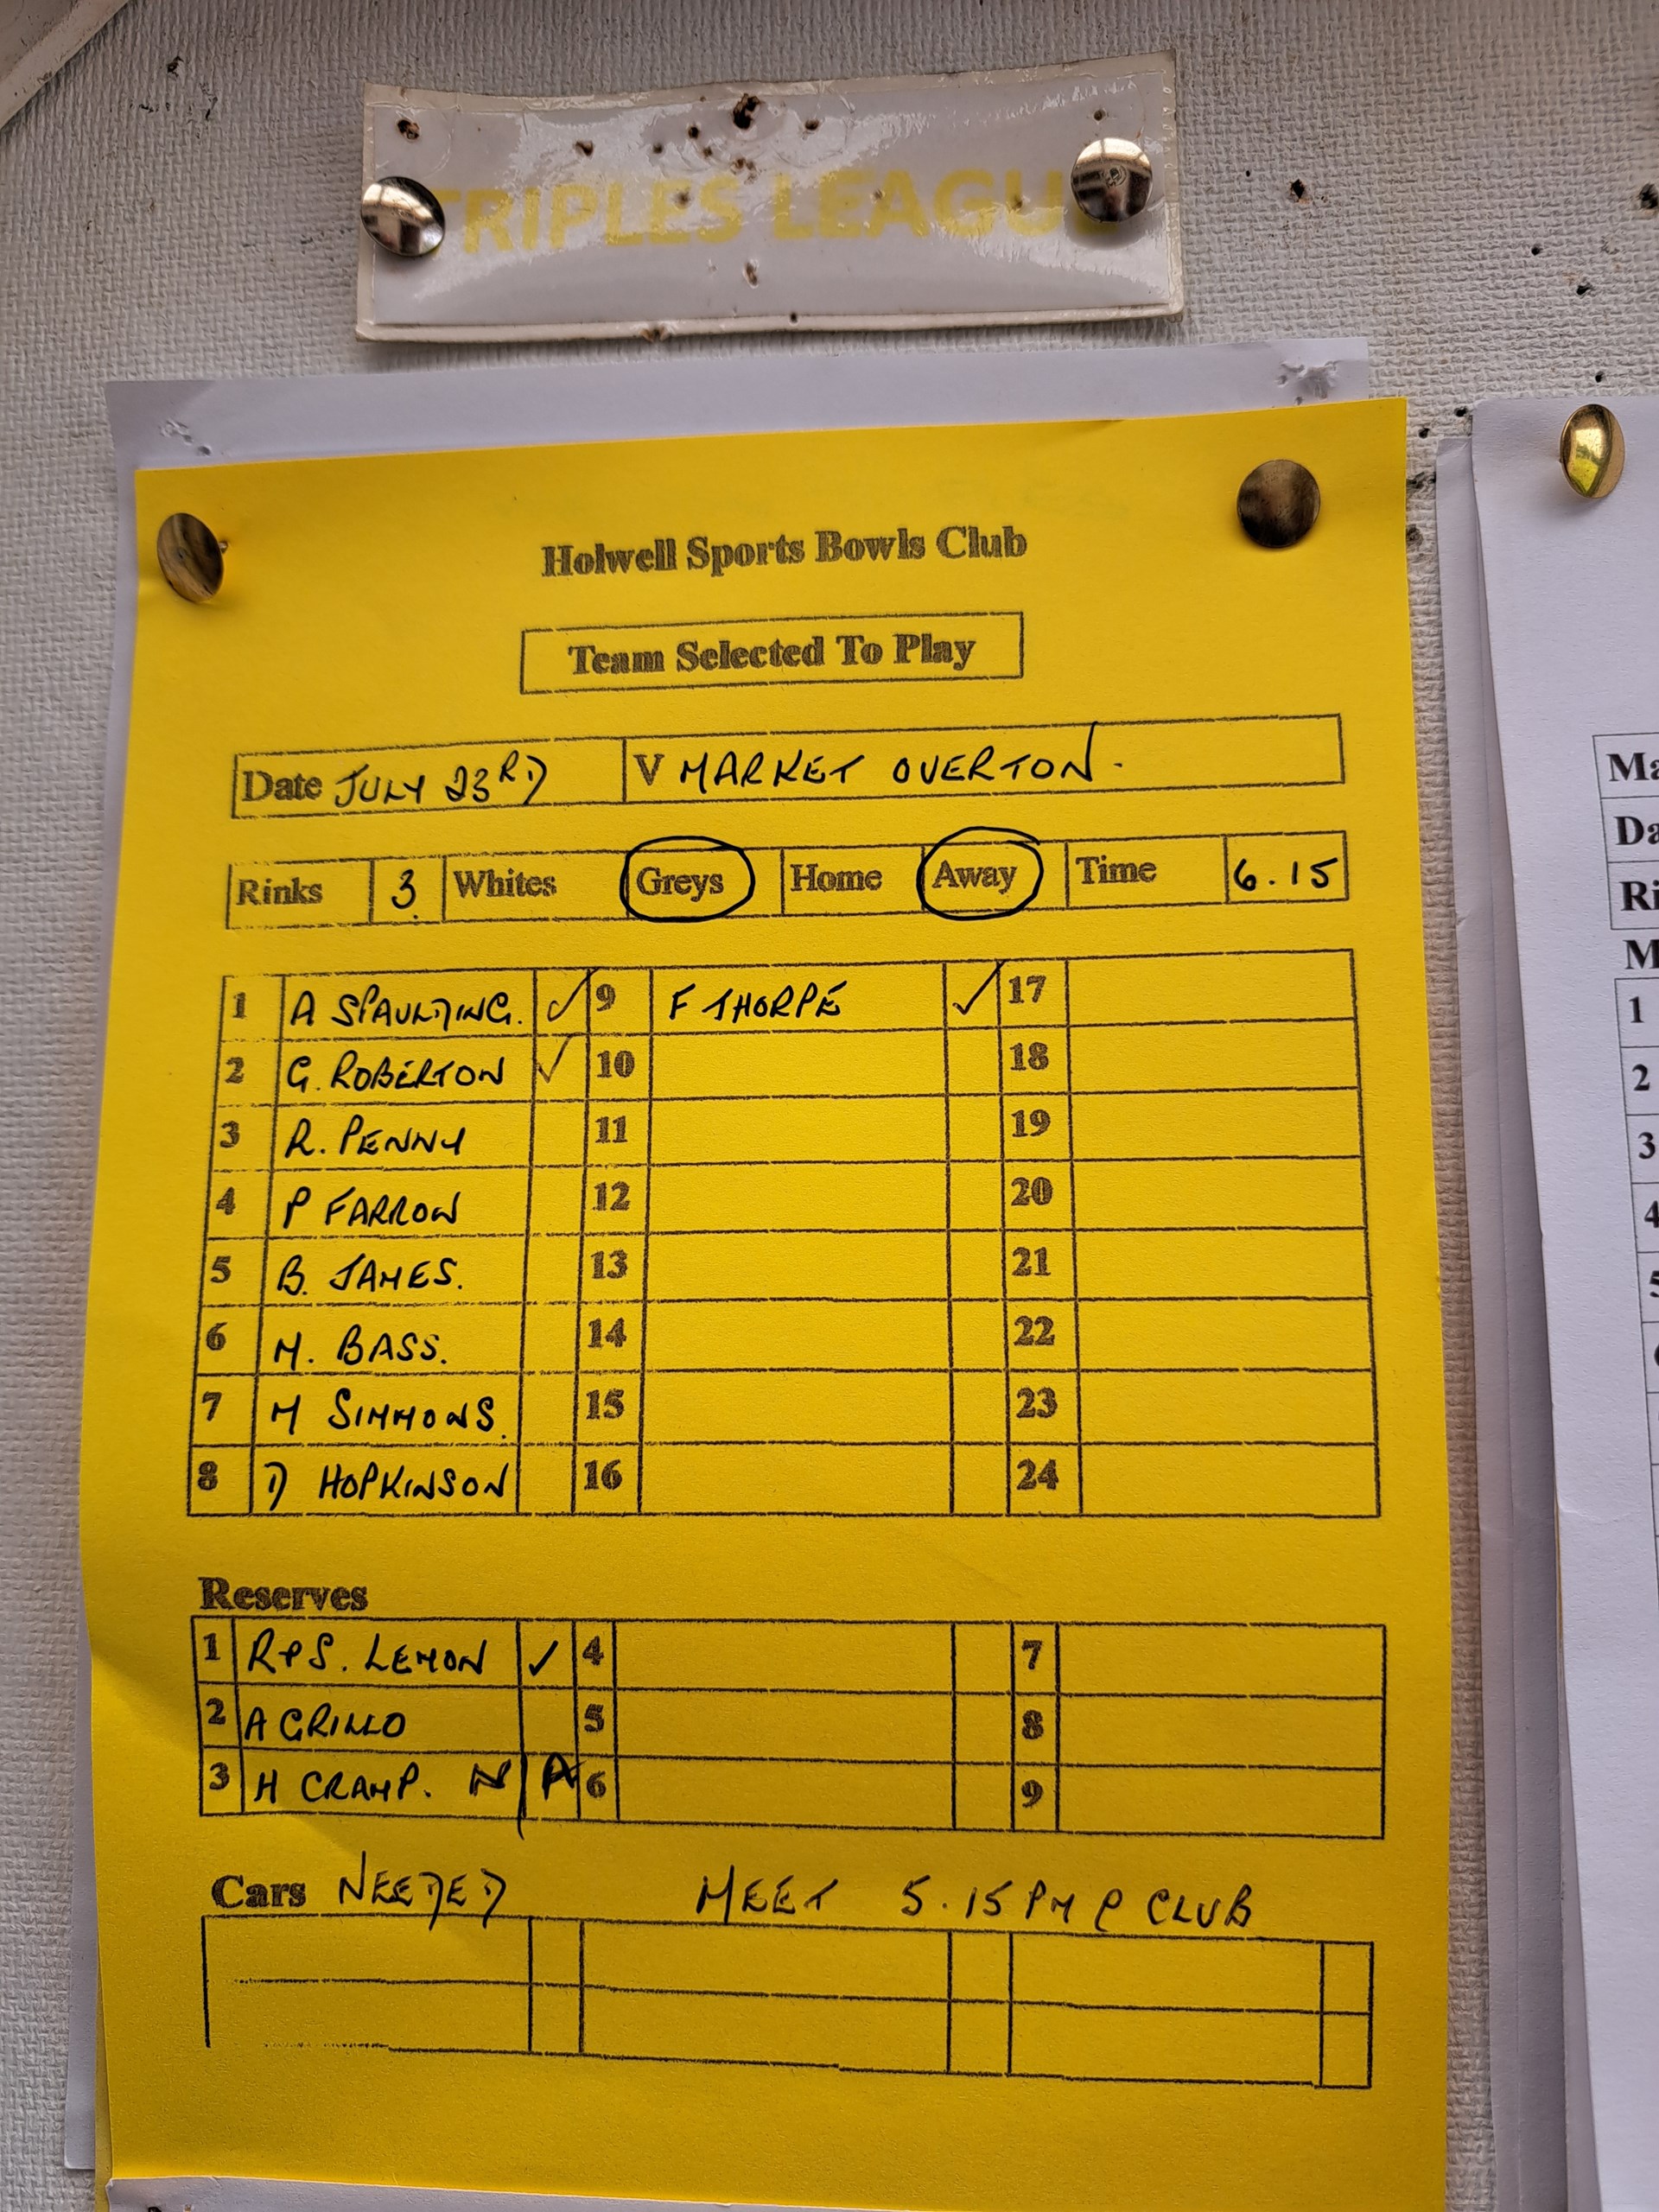 TRIPLES LEAGUE
Holwell Sports Bowls Club
Team Selected To Play
Date JULY 23RD V MARKET OVERTON.
Rinks 3. Whites Greys Home Away Time 6.15
1 A SPAULDING. ✓ 9 F THORPE ✓ 17
2 G. ROBERTON ✓ 10 18
3 R. PENNY 11 19
4 P FARROW 12 20
5 B. JAMES. 13 21
6 M. BASS. 14 22
7 M SIMMONS. 15 23
8 D HOPKINSON 16 24
Reserves
1 R+S. LEMON ✓ 4 7
2 A GRILLO 5 8
3 H CRAMP. N/A 6 9
Cars NEEDED MEET 5.15PM @ CLUB
Ma
Da
Ri
M
1
2
3
4
5